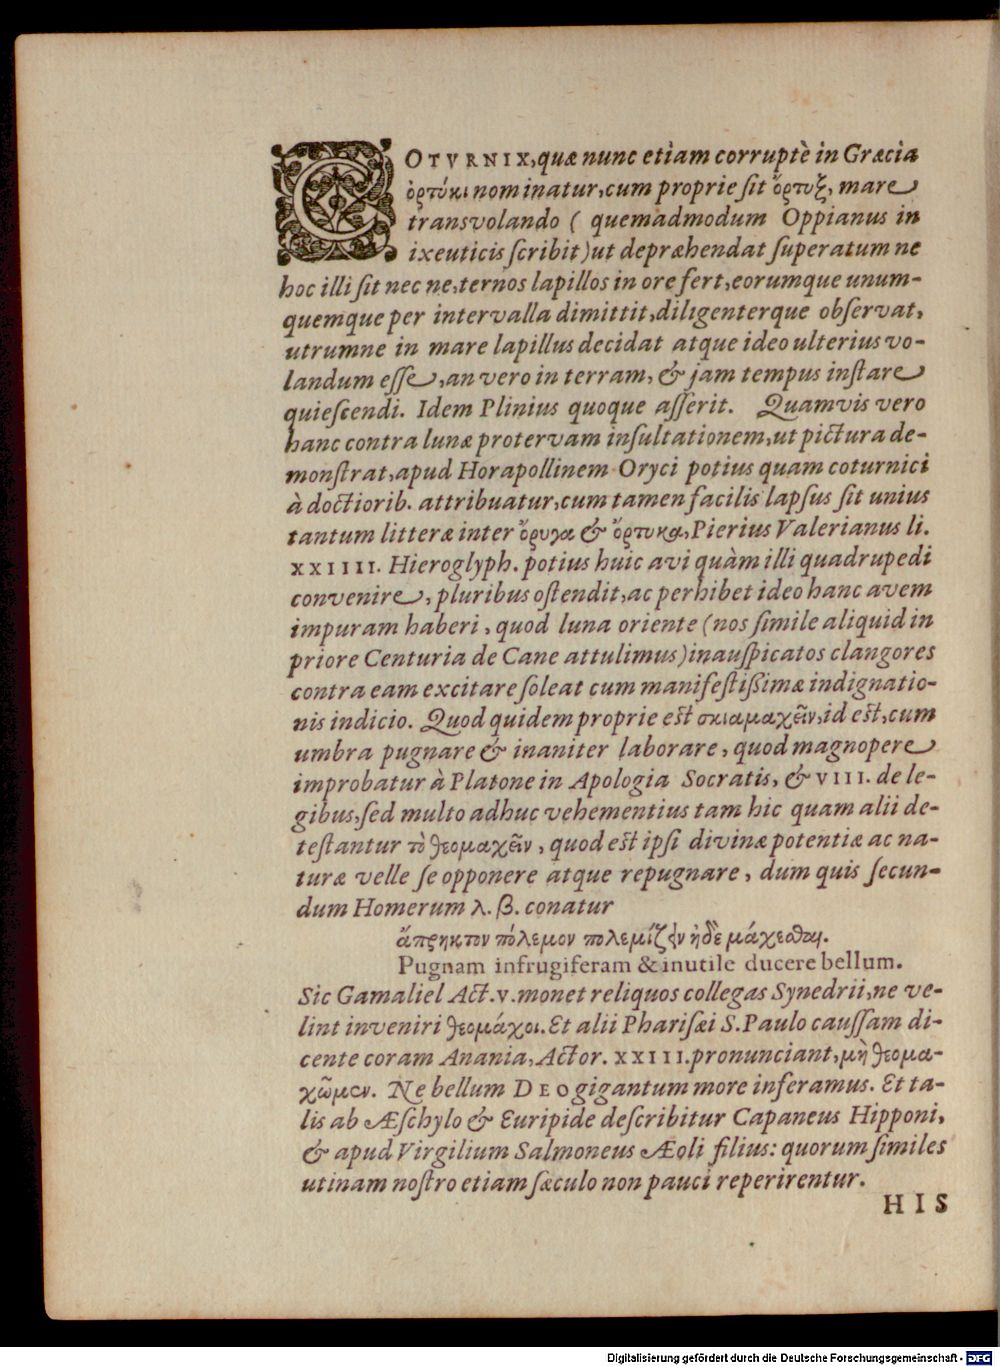 COTVRNIX, quæ nunc etiam corruptè in Græcia
ὀρτύκι nominatur, cum proprie ſit ὄρτυξ, mare
transvolando ( quemadmodum Oppianus in
ixeuticis ſcribit) ut depræhendat ſuperatum ne
hoc illi ſit nec ne, ternos lapillos in ore fert, eorumque unum-
quemque per intervalla dimittit, diligenterque obſervat,
utrumne in mare lapillus decidat atque ideo ulterius vo-
landum eſſe, an vero in terram, & jam tempus inſtare
quieſcendi. Idem Plinius quoque aſſerit. Quamvis vero
hanc contra lunæ protervam inſultationem, ut pictura de-
monſtrat, apud Horapollinem Oryci potius quam coturnici
à doctiorib. attribuatur, cum tamen facilis lapſus ſit unius
tantum litteræ inter ὄρυγα & ὄρτυκα, Pierius Valerianus li.
XXIIII. Hieroglyph. potius huic avi quàm illi quadrupedi
convenire, pluribus oſtendit, ac perhibet ideo hanc avem
impuram haberi, quod luna oriente (nos ſimile aliquid in
priore Centuria de Cane attulimus) inauſpicatos clangores
contra eam excitare ſoleat cum manifeſtißimæ indignatio-
nis indicio. Quod quidem proprie est σκιαμαχεῖν, id est, cum
umbra pugnare & inaniter laborare, quod magnopere
improbatur à Platone in Apologia Socratis, & VIII. de le-
gibus, ſed multo adhuc vehementius tam hic quam alii de-
teſtantur τὸ θεομαχεῖν, quod est ipſi divinæ potentiæ ac na-
turæ velle ſe opponere atque repugnare, dum quis ſecun-
dum Homerum λ. β. conatur
ἄπρηκτον πόλεμον πολεμίζειν ἠδὲ μάχεσθαι.
Pugnam infrugiferam & inutile ducere bellum.
Sic Gamaliel Act. v. monet reliquos collegas Synedrii, ne ve-
lint inveniri θεομάχοι. Et alii Phariſæi S. Paulo cauſſam di-
cente coram Anania, Actor. XXIII. pronunciant, μὴ θεομα-
χῶμεν. Ne bellum DEO gigantum more inferamus. Et ta-
lis ab Æſchylo & Euripide deſcribitur Capaneus Hipponi,
& apud Virgilium Salmoneus Æoli filius: quorum ſimiles
utinam noſtro etiam ſæculo non pauci reperirentur.
HIS
Digitalisierung gefördert durch die Deutsche Forschungsgemeinschaft - DFG